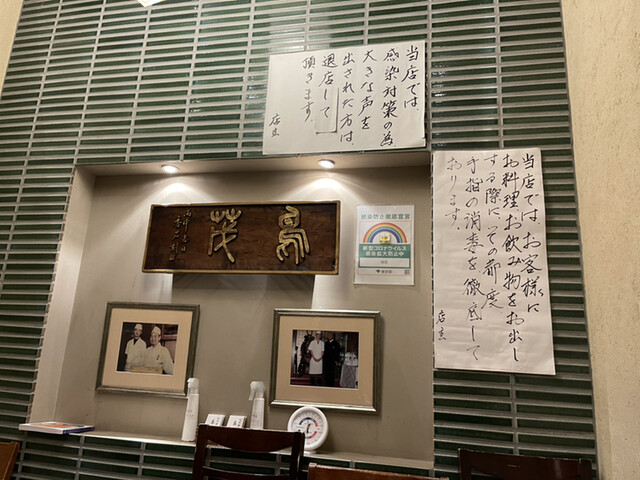 当店では、
感染対策の為
大きな声を
出された方は、
退店して
頂きます。
店主
当店ではお客様に
お料理お飲み物をお出し
する際に、その都度
手指の消毒を徹底して
おります。
店主
鳥茂
感染防止徹底宣言
新型コロナウイルス
感染拡大防止中